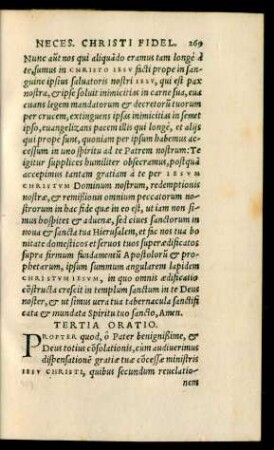 NECES. CHRISTI FIDEL. 269
Nunc aũt nos qui aliquãdo eramus tam longè à
te, sumus in CHRISTO IESV facti prope in san
guine ipsius saluatoris nostri IESV, qui est pax
nostra, & ipse soluit inimicitias in carne sua, eua
cuans legem mandatorum & decretorũ tuorum
per crucem, extinguens ipsas inimicitias in semet
ipso, euangelizans pacem illis qui longè, et alijs
qui prope sunt, quoniam per ipsum habemus ac
cessum in uno spiritu ad te Patrem nostrum: Te
igitur supplices humiliter obsecramus, postquã
accepimus tantam gratiam à te per IESVM
CHRISTVM Dominum nostrum, redemptionis
nostræ, & remissionis omnium peccatorum no
strorum in hac fide quæ in eo est, ut iam non si
mus hospites & aduenæ, sed ciues sanctorum in
noua & sancta tua Hierusalem, et fac nos tua bo
nitate domesticos et seruos tuos superædificatos
supra firmum fundamentũ Apostolorũ & pro
phetarum, ipsum summum angularem lapidem
CHRISTVM IESVM, in quo omnis ædificatio
cõstructa crescit in templum sanctum in te Deus
noster, & ut simus uera tua tabernacula sanctifi
cata & mundata Spiritu tuo sancto, Amen.
TERTIA ORATIO.
PROPTER quod, ô Pater benignissime, &
Deus totius cõsolationis, cùm audiuerimus
dispensationẽ gratiæ tuæ cõcessæ ministris
IESV CHRISTI, quibus secundum reuelatio-
nem